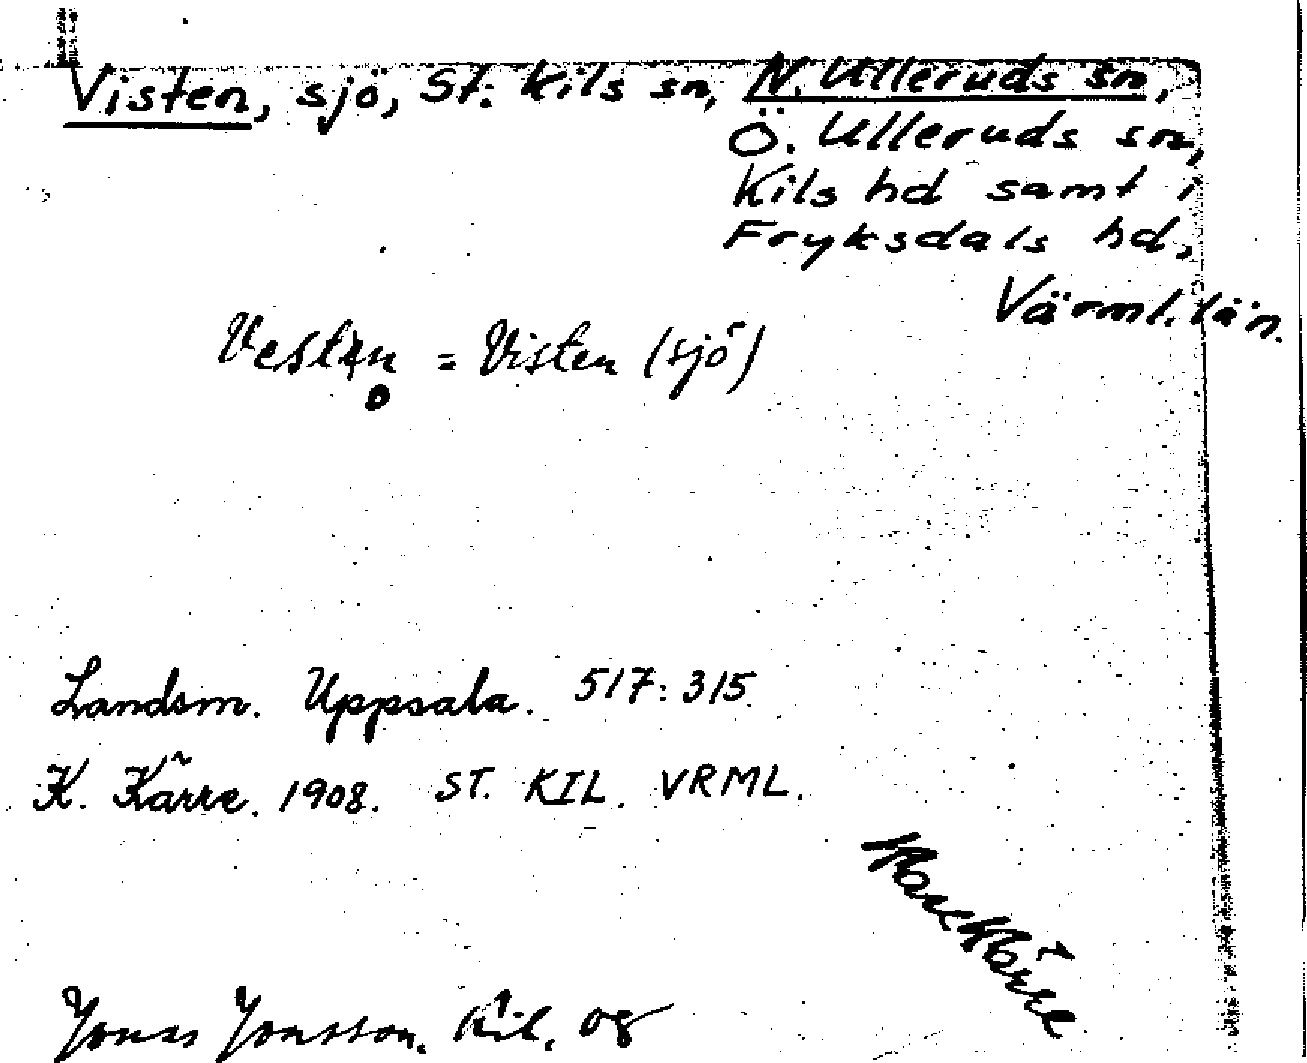 Visten, sjö, St. Kils sn, N. Ulleruds sn,
Ö. Ulleruds sn,
Kils hd samt i
Fryksdals hd,
Värml. län.
= Visten (sjö)
Landsm. Uppsala. 517:315.
K. Kärre. 1908. ST. KIL. VRML.
Karl Kärre
Jonas Jonsson. Kil. og